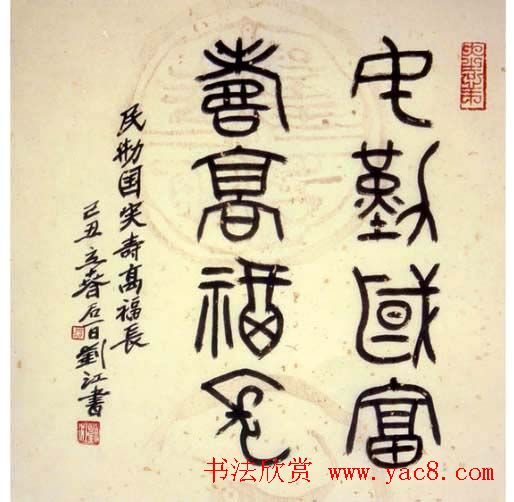 民勤國富
壽高福長
民勤国富寿高福長
己丑立春后一日劉江書
书法欣赏 www.yac8.com